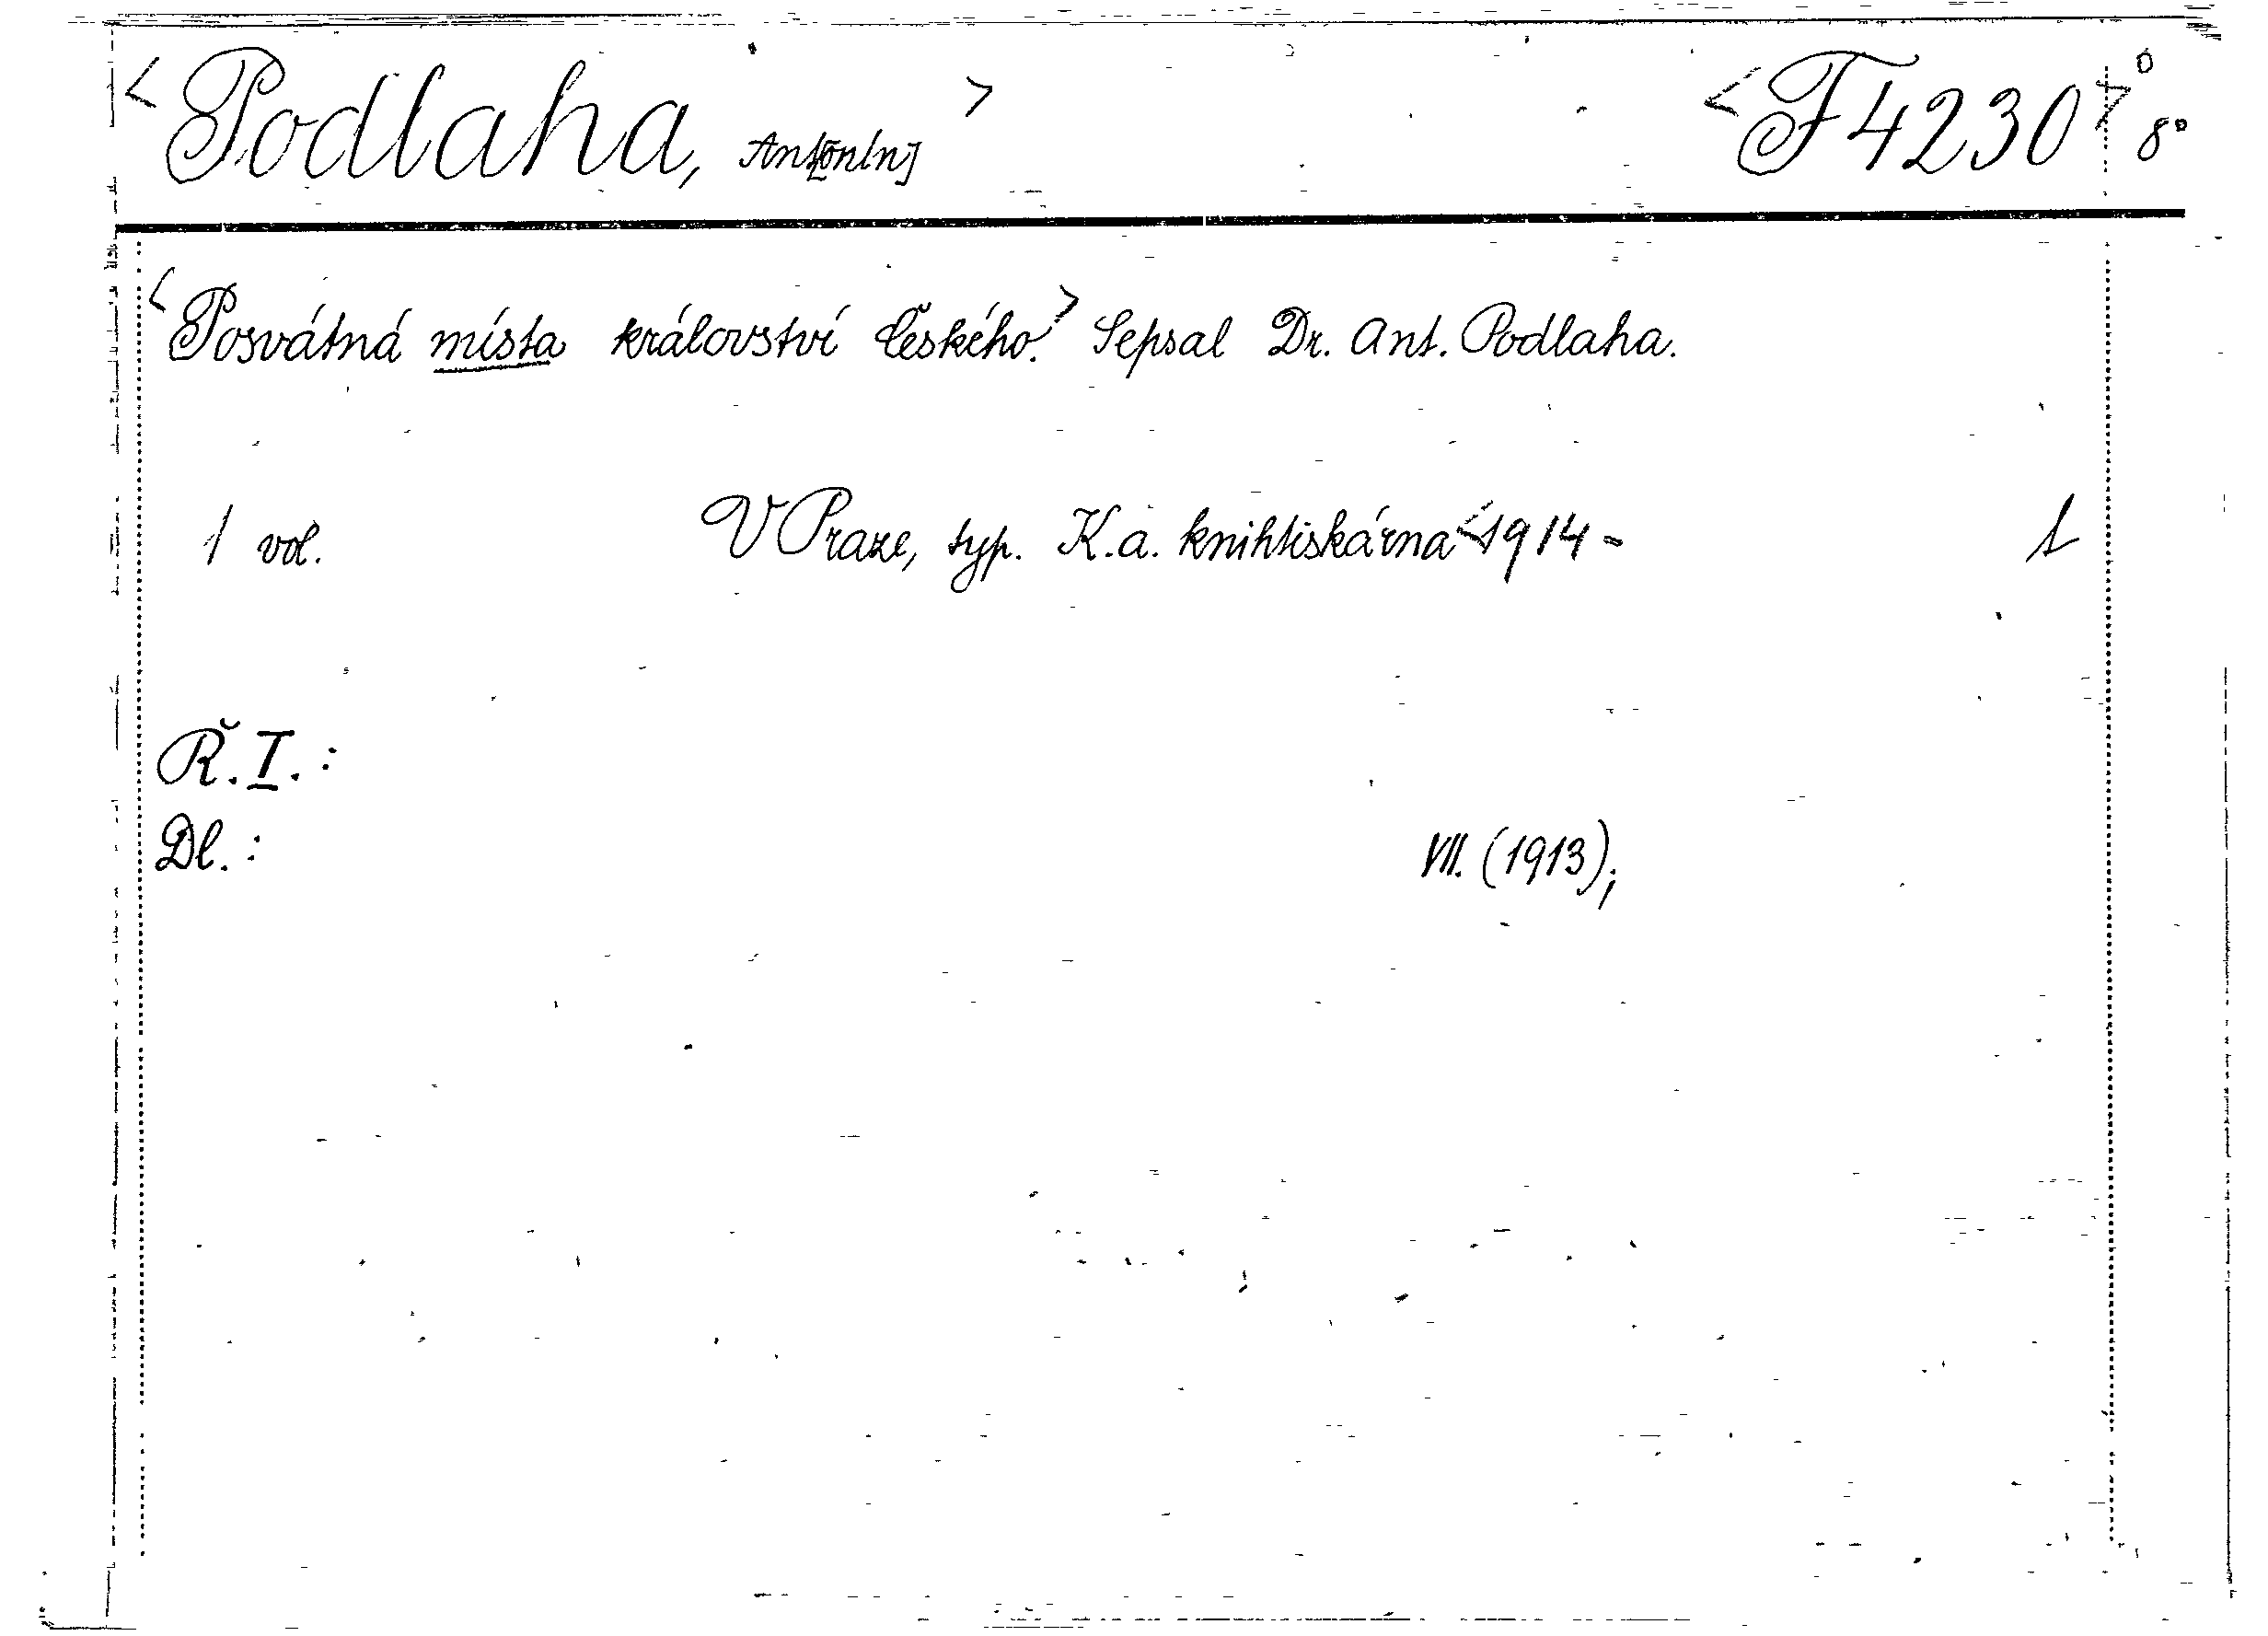 <Podlaha, Ant[onín]> <F 4230> 8°
<Posvátná místa království českého.> Sepsal Dr. Ant. Podlaha.
1 vol. V Praze, typ. K.a. knihtiskárna <1914- 1
Ř.I.:
Dl.: VII. (1913);